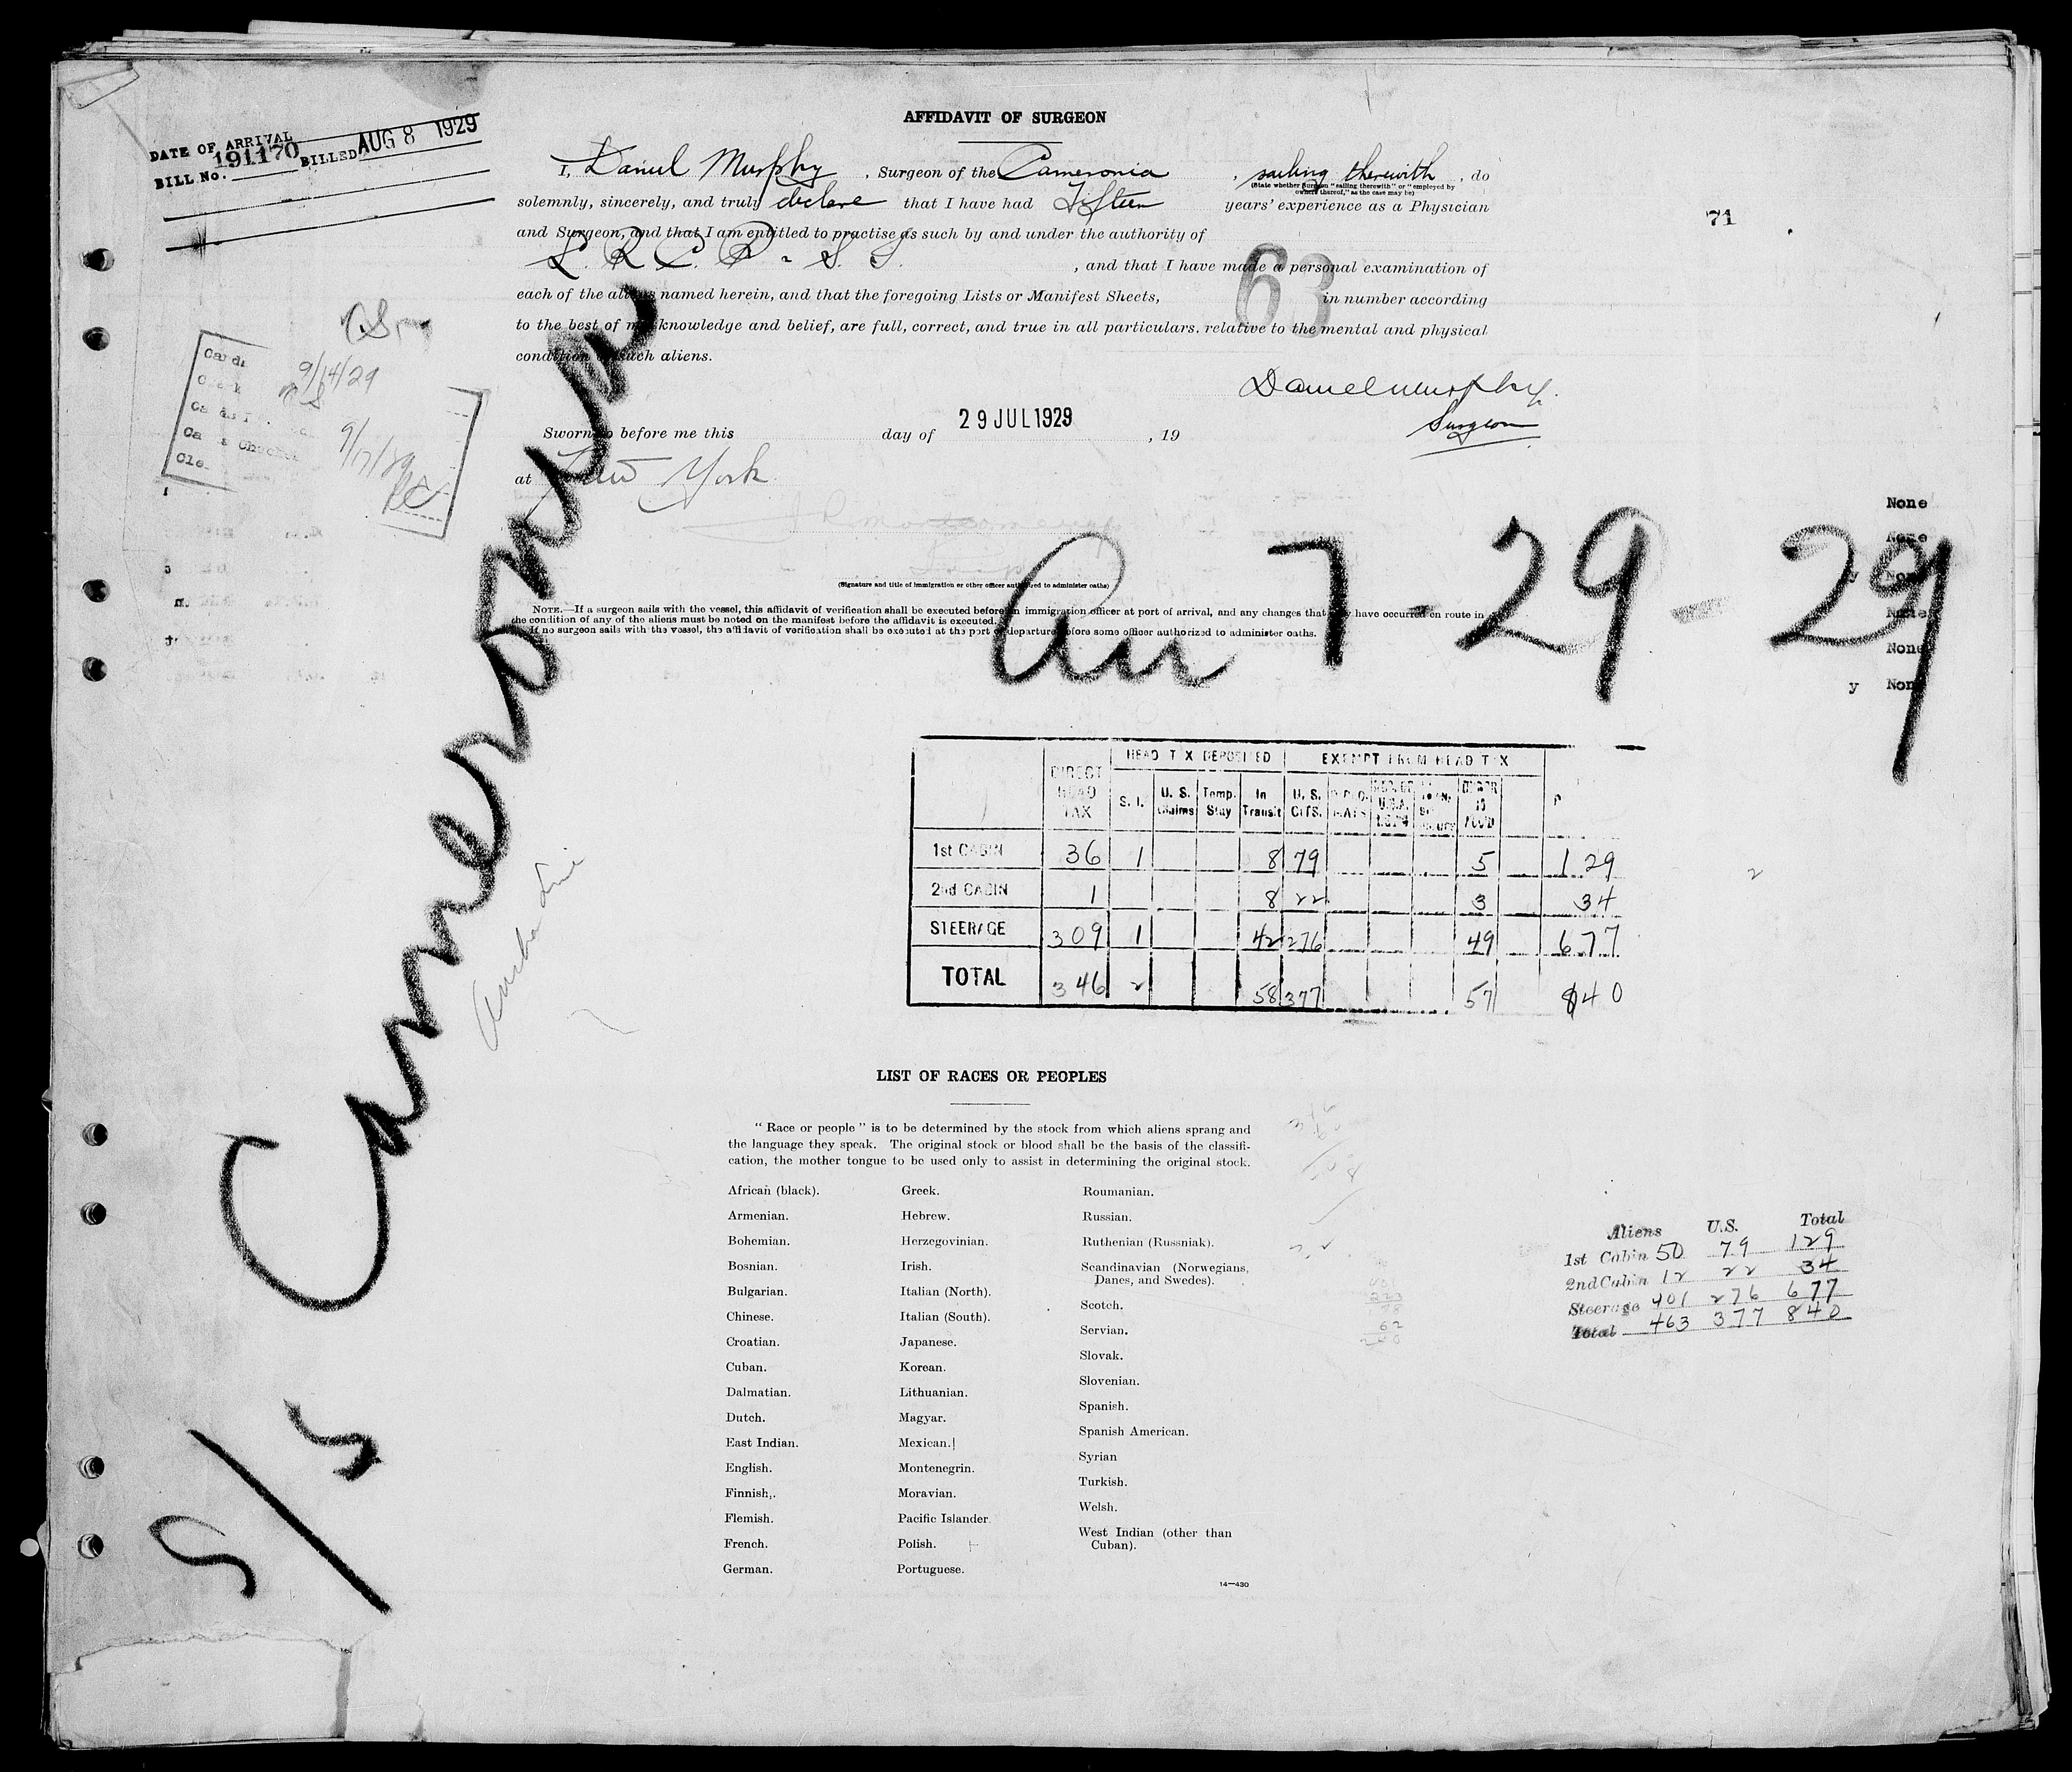 AFFIDAVIT OF SURGEON
DATE OF ARRIVAL
BILL No. 191170 BILLED AUG 8 1929
I, Daniel Murphy, Surgeon of the Cameronia, sailing therewith, do
(State whether Surgeon "sailing therewith" or "employed by
owners thereof," as the case may be)
solemnly, sincerely, and truly declare that I have had Fifteen years' experience as a Physician
71
and Surgeon, and that I am entitled to practise as such by and under the authority of
L. R. C. P. & S. , and that I have made a personal examination of
63
each of the aliens named herein, and that the foregoing Lists or Manifest Sheets, in number according
to the best of my knowledge and belief, are full, correct, and true in all particulars. relative to the mental and physical
condition of such aliens.
9/14/29
9/17/29
Daniel Murphy.
Surgeon
Sworn to before me this day of 29 JUL 1929 , 19
at New York
(Signature and title of immigration or other officer authorized to administer oaths)
NOTE.—If a surgeon sails with the vessel, this affidavit of verification shall be executed before an immigration officer at port of arrival, and any changes that may have occurred en route in
the condition of any of the aliens must be noted on the manifest before the affidavit is executed.
If no surgeon sails with the vessel, the affidavit of verification shall be executed at the port of departure before some officer authorized to administer oaths.
None
None
y None
None
None
y None
Arr 7-29-29
S/S Cameronia
Anchor Line
DIRECT HEAD TAX HEAD TAX DEPOSITED EXEMPT FROM HEAD TAX
S. I. U. S. Claims Temp. Stay In Transit U. S. CITS.
1st CABIN 36 1 8 79 5 129
2nd CABIN 1 8 22 3 34
STEERAGE 309 1 42 276 49 677
TOTAL 346 2 58 377 57 840
LIST OF RACES OR PEOPLES
" Race or people " is to be determined by the stock from which aliens sprang and
the language they speak. The original stock or blood shall be the basis of the classifi-
cation, the mother tongue to be used only to assist in determining the original stock.
African (black).
Armenian.
Bohemian.
Bosnian.
Bulgarian.
Chinese.
Croatian.
Cuban.
Dalmatian.
Dutch.
East Indian.
English.
Finnish.
Flemish.
French.
German.
Greek.
Hebrew.
Herzegovinian.
Irish.
Italian (North).
Italian (South).
Japanese.
Korean.
Lithuanian.
Magyar.
Mexican.
Montenegrin.
Moravian.
Pacific Islander
Polish.
Portuguese.
Roumanian.
Russian.
Ruthenian (Russniak).
Scandinavian (Norwegians,
Danes, and Swedes).
Scotch.
Servian.
Slovak.
Slovenian.
Spanish.
Spanish American.
Syrian
Turkish.
Welsh.
West Indian (other than
Cuban).
14—430
Aliens U.S. Total
1st Cabin 50 79 129
2nd Cabin 12 22 34
Steerage 401 276 677
Total 463 377 840